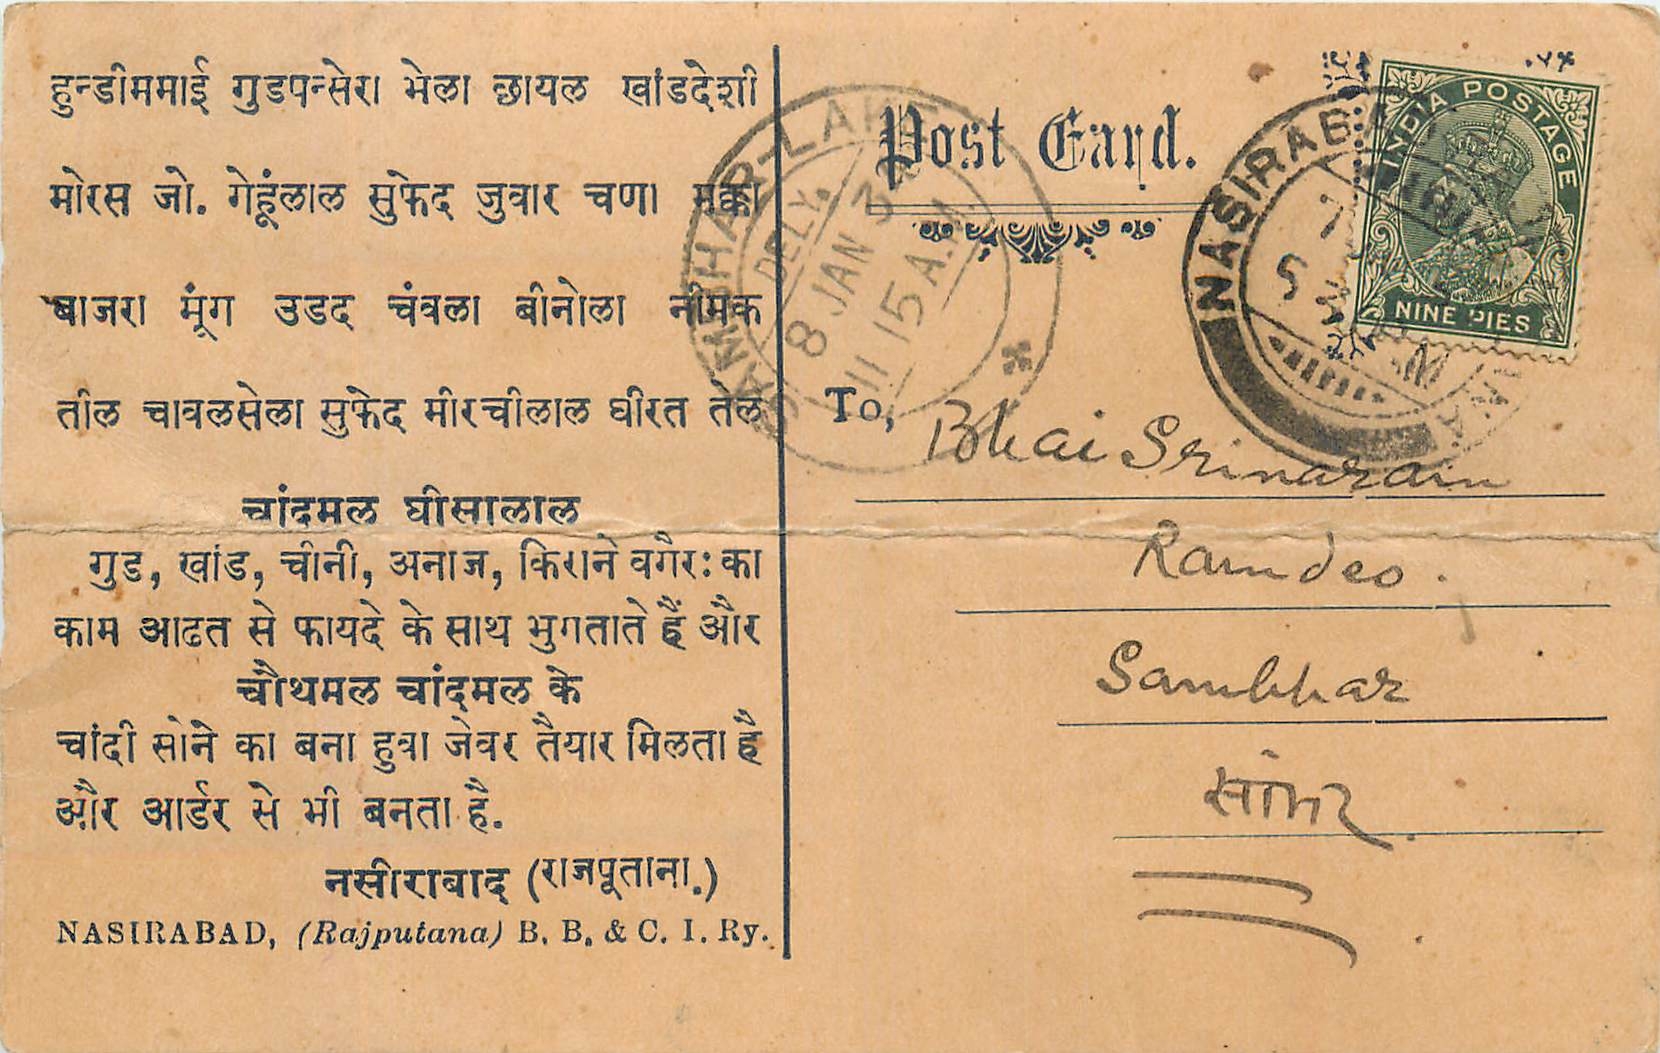 हुन्डीममाई गुडपन्सेरा भेला छायल खांडदेशी
मोरस जो. गेहूंलाल सुफेद जुवार चणा मक्की
बाजरा मूंग उडद चंवला बीनोला नीमक
तील चावलसेला सुफेद मीरचीलाल घीरत तेल
चांदमल घीसालाल
गुड, खांड, चीनी, अनाज, किराने वगैर: का
काम आढत से फायदे के साथ भुगताते हैं और
चौथमल चांदमल के
चांदी सोने का बना हुवा जेवर तैयार मिलता है
और आर्डर से भी बनता है.
नसीराबाद (राजपूताना.)
NASIRABAD, (Rajputana) B. B. & C. I. Ry.
Post Card.
SAMBHAR-LAKE
DELY.
8 JAN 34
11 15 A.M.
NASIRABAD
INDIA POSTAGE
NINE PIES
To,
Bhai Srinarain
Ramdeo.
Sambhar
सांभर